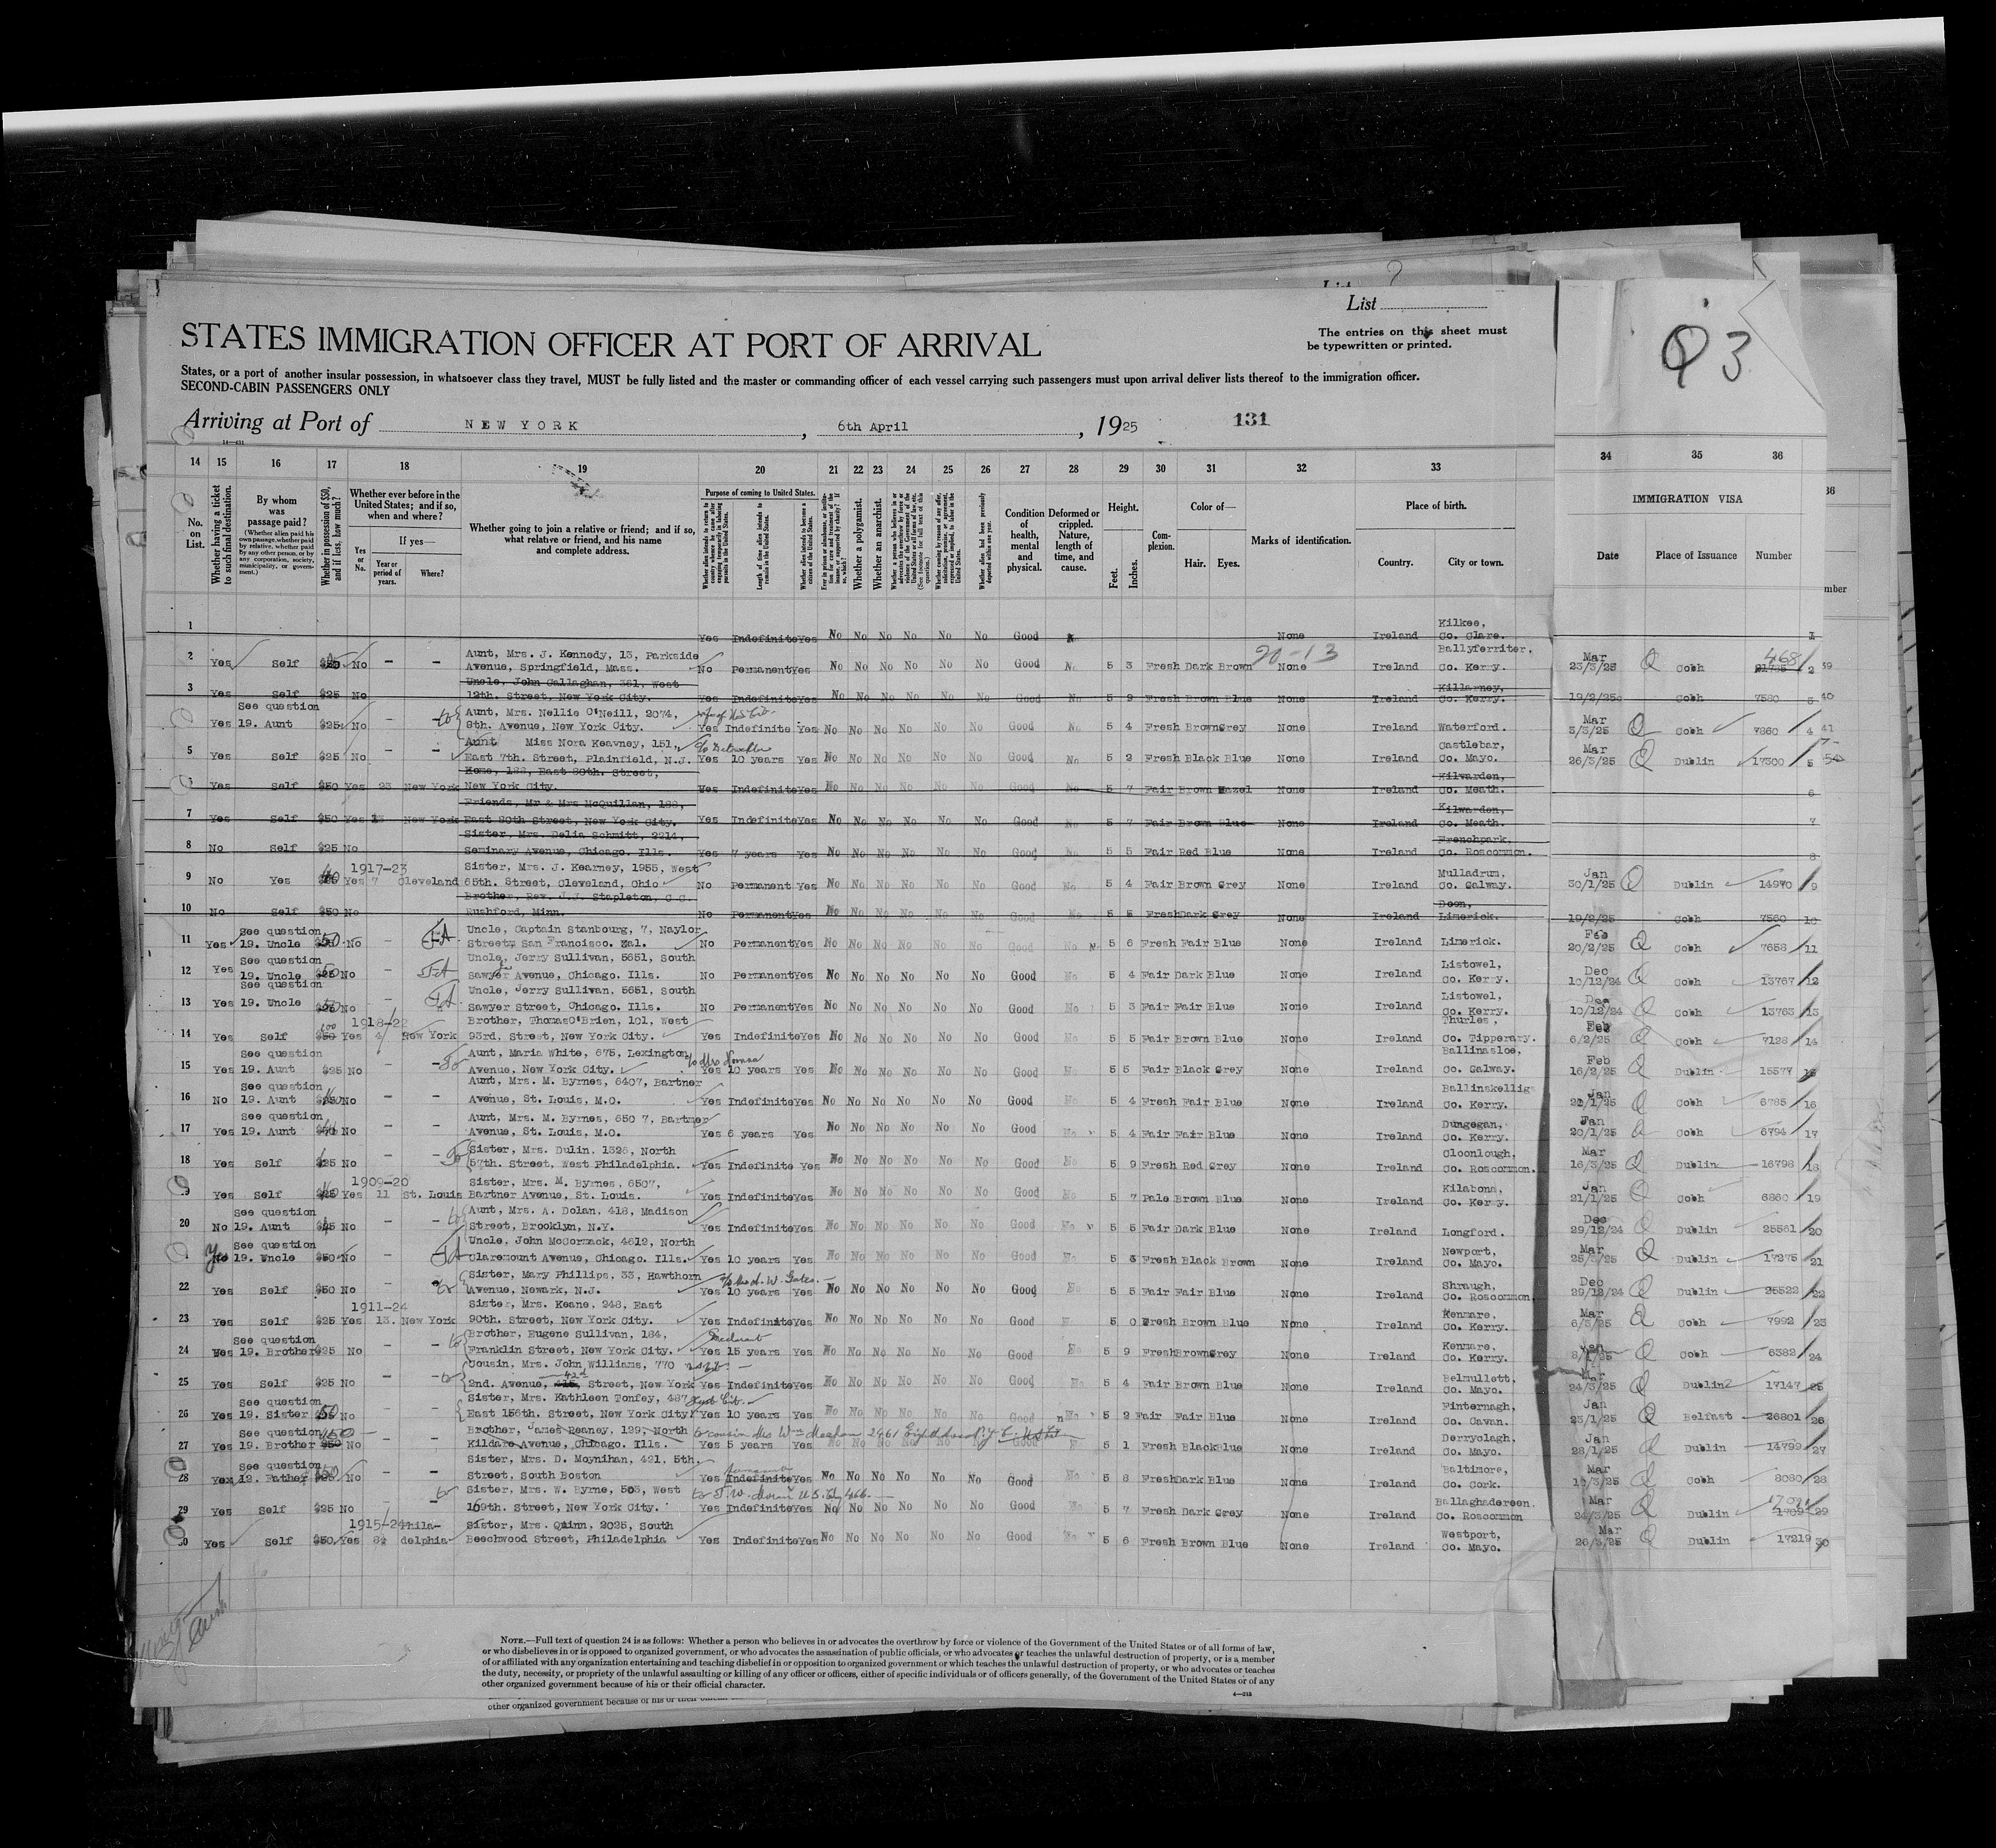 List
STATES IMMIGRATION OFFICER AT PORT OF ARRIVAL
The entries on this sheet must
be typewritten or printed.
Q 3
States, or a port of another insular possession, in whatsoever class they travel, MUST be fully listed and the master or commanding officer of each vessel carrying such passengers must upon arrival deliver lists thereof to the immigration officer.
SECOND-CABIN PASSENGERS ONLY
Arriving at Port of NEW YORK, 6th April, 1925 131
14 15 16 17 18 19 20 21 22 23 24 25 26 27 28 29 30 31 32 33 34 35 36
No. on List.
Whether having a ticket to such final destination.
By whom was passage paid?
(Whether alien paid his own passage, whether paid by relative, whether paid by any other person, or by any corporation, society, municipality, or government.)
Whether in possession of $50, and if less, how much?
Whether ever before in the United States; and if so, when and where?
If yes—
Yes or No.
Year or period of years.
Where?
Whether going to join a relative or friend; and if so, what relative or friend, and his name and complete address.
Purpose of coming to United States.
Length of time alien intends to remain in the United States.
Whether alien intends to become a citizen of the United States.
Whether a polygamist.
Whether an anarchist.
Condition of health, mental and physical.
Deformed or crippled. Nature, length of time, and cause.
Height.
Feet. Inches.
Complexion.
Color of—
Hair. Eyes.
Marks of identification.
Place of birth.
Country. City or town.
IMMIGRATION VISA
Date Place of Issuance Number
1 Kilkee,
Yes Indefinite Yes No No No No No No Good None Ireland Co. Clare. 1
2 Aunt, Mrs. J. Kennedy, 13, Parkside Ballyferriter, Mar 468
Yes Self No - - Avenue, Springfield, Mass. No Permanent Yes No No No No No No Good No 5 3 Fresh Dark Brown None Ireland Co. Kerry. 23/3/25 Q Cobh 2 39
20-13
3 Uncle, John Callaghan, 361, West Killarney,
Yes Self $25 No 12th. Street, New York City. Yes Indefinite Yes No No No No No No Good No 5 9 Fresh Brown Blue None Ireland Co. Kerry. 19/2/25 Cobh 7580 3 40
See question Aunt, Mrs. Nellie O'Neill, 2074, Mar
Yes 19. Aunt $25 No - 8th. Avenue, New York City. Yes Indefinite Yes No No No No No No Good No 5 4 Fresh Brown Grey None Ireland Waterford. 3/3/25 Q Cobh 7860 4 41
5 Aunt Miss Nora Keavney, 151, Castlebar, Mar
Yes Self $25 No - - East 7th. Street, Plainfield, N.J. Yes 10 years Yes No No No No No No Good No 5 2 Fresh Black Blue None Ireland Co. Mayo. 26/3/25 Q Dublin 17300 5
Home, 188, East 80th. Street, Kilwarden,
Yes Self $50 Yes 23 New York New York City. Yes Indefinite Yes No No No No No No Good No 5 7 Fair Brown Hazel None Ireland Co. Meath. 6
7 Friends, Mr & Mrs McQuillan, 188, Kilwarden,
Yes Self $50 Yes 13 New York East 80th Street, New York City. Yes Indefinite Yes No No No No No No Good No 5 7 Fair Brown Blue None Ireland Co. Meath. 7
8 Sister, Mrs. Delia Schmitt, 2214, Frenchpark,
No Self $25 No Seminary Avenue, Chicago. Ills. Yes 7 years Yes No No No No No No Good No 5 5 Fair Red Blue None Ireland Co. Roscommon. 8
9 1917-23 Sister, Mrs. J. Kearney, 1955, West Mulladrum, Jan
No Yes Yes 7 Cleveland 65th. Street, Cleveland, Ohio No Permanent Yes No No No No No No Good No 5 4 Fair Brown Grey None Ireland Co. Galway. 30/1/25 Q Dublin 14970 9
10 Brother, Rev. J.J. Stapleton, C.C. Doon,
No Self $50 No Rushford, Minn. No Permanent Yes No No No No No No Good No 5 5 Fresh Dark Grey None Ireland Limerick. 19/2/25 Cobh 7560 10
11 See question Uncle, Captain Stanbourg, 7, Naylor Feb
Yes 19. Uncle 50 No - Street, San Francisco. Cal. No Permanent Yes No No No No No No Good No 5 6 Fresh Fair Blue None Ireland Limerick. 20/2/25 Q Cobh 7658 11
12 See question Uncle, Jerry Sullivan, 5651, South Listowel, Dec
Yes 19. Uncle No - Sawyer Avenue, Chicago. Ills. No Permanent Yes No No No No No No Good No 5 4 Fair Dark Blue None Ireland Co. Kerry. 10/12/24 Q Cobh 13767 12
13 See question Uncle, Jerry Sullivan, 5651, South Listowel, Dec
Yes 19. Uncle No - Sawyer Street, Chicago. Ills. No Permanent Yes No No No No No No Good No 5 3 Fair Fair Blue None Ireland Co. Kerry. 10/12/24 Q Cobh 13763 13
14 1918-22 Brother, Thomas O'Brien, 101, West Thurles, Feb
Yes Self Yes 4 New York 93rd, Street, New York City. Yes Indefinite Yes No No No No No No Good No 5 5 Fair Brown Blue None Ireland Co. Tipperary. 6/2/25 Q Cobh 7128 14
15 See question Aunt, Maria White, 675, Lexington Ballinasloe, Feb
Yes 19. Aunt $25 No - Avenue, New York City. Yes 10 years Yes No No No No No No Good No 5 5 Fair Black Grey None Ireland Co. Galway. 16/2/25 Q Dublin 15577 15
16 See question Aunt, Mrs. M. Byrnes, 6407, Bartner Ballinskellig Jan
No 19. Aunt No - - Avenue, St. Louis, M.O. Yes Indefinite Yes No No No No No No Good No 5 4 Fresh Fair Blue None Ireland Co. Kerry. 21/1/25 Q Cobh 6785 16
17 See question Aunt, Mrs. M. Byrnes, 650 7, Bartmer Dungegan, Jan
Yes 19. Aunt No - - Avenue, St. Louis, M.O. Yes 6 years Yes No No No No No No Good No 5 4 Fair Fair Blue None Ireland Co. Kerry. 20/1/25 Q Cobh 6794 17
18 Sister, Mrs. Dulin, 1326, North Cloonlough, Mar
Yes Self $25 No - 57th. Street, West Philadelphia. Yes Indefinite Yes No No No No No No Good No 5 9 Fresh Red Grey None Ireland Co. Roscommon. 16/3/25 Q Dublin 16798 18
19 1909-20 Sister, Mrs. M. Byrnes, 6507, Kilabona, Jan
Yes Self Yes 11 St. Louis Bartner Avenue, St. Louis. Yes Indefinite Yes No No No No No No Good No 5 7 Pale Brown Blue None Ireland Co. Kerry. 21/1/25 Q Cobh 6860 19
20 See question Aunt, Mrs. A. Dolan, 418, Madison Dec
No 19. Aunt No - Street, Brooklyn, N.Y. Yes Indefinite Yes No No No No No No Good No 5 5 Fair Dark Blue None Ireland Longford. 29/12/24 Q Dublin 25561 20
See question Uncle, John McCormack, 4612, North Newport, Mar
Yes 19. Uncle $50 No - Claremount Avenue, Chicago. Ills. Yes 10 years Yes No No No No No No Good No 5 3 Fresh Black Brown None Ireland Co. Mayo. 25/3/25 Q Dublin 17275 21
22 Sister, Mary Phillips, 33, Hawthorn Shraugh, Dec
Yes Self $50 No - Avenue, Newark, N.J. Yes 10 years Yes No No No No No No Good No 5 5 Fair Fair Blue None Ireland Co. Roscommon. 29/12/24 Q Dublin 25522 22
23 1911-24 Sister, Mrs. Keane, 248, East Kenmare, Mar
Yes Self $25 Yes 13. New York 90th. Street, New York City. Yes Indefinite Yes No No No No No No Good No 5 0 Fresh Brown Blue None Ireland Co. Kerry. 6/3/25 Q Cobh 7992 23
24 See question Brother, Eugene Sullivan, 184, Declarant Kenmare, Jan
Yes 19. Brother $25 No - Franklin Street, New York City. Yes 15 years Yes No No No No No No Good No 5 9 Fresh Brown Grey None Ireland Co. Kerry. 8/1/25 Q Cobh 6382 24
25 Cousin, Mrs. John Williams, 770 Belmullett, Mar
Yes Self $25 No - 2nd. Avenue, 42nd Street, New York Yes Indefinite Yes No No No No No No Good No 5 4 Fair Brown Blue None Ireland Co. Mayo. 24/3/25 Q Dublin 17147 25
26 See question Sister, Mrs. Kathleen Tonfey, 487 Finternagh, Jan
Yes 19. Sister 50 No East 156th. Street, New York City. Yes 10 years Yes No No No No No No Good No 5 2 Fair Fair Blue None Ireland Co. Cavan. 23/1/25 Q Belfast 26801 26
27 See question Brother, James Reaney, 129, North to cousin Mrs Wm Meehan 2961 Eighth Ave N.Y. C. Derryclagh, Jan
Yes 19. Brother $50 No Kildare Avenue, Chicago. Ills. Yes 5 years Yes No No No No No No Good No 5 1 Fresh Black Blue None Ireland Co. Mayo. 28/1/25 Q Dublin 14799 27
28 See question Sister, Mrs. D. Moynihan, 421, 5th. Permanent Baltimore, Mar
Yes 19. Father 50 No - Street, South Boston Yes Indefinite Yes No No No No No No Good No 5 8 Fresh Dark Blue None Ireland Co. Cork. 10/3/25 Q Cobh 8080 28
29 Sister, Mrs. W. Byrne, 503, West Ballaghadereen. Mar
Yes Self $25 No - 169th. Street, New York City. Yes Indefinite Yes No No No No No No Good No 5 7 Fresh Dark Grey None Ireland Co. Roscommon 24/3/25 Q Dublin 29
30 1915-24 Phila- Sister, Mrs. Quinn, 2025, South Westport, Mar
Yes Self $50 Yes 8½ delphia Beechwood Street, Philadelphia Yes Indefinite Yes No No No No No No Good No 5 6 Fresh Brown Blue None Ireland Co. Mayo. 26/3/25 Q Dublin 17219 30
NOTE.—Full text of question 24 is as follows: Whether a person who believes in or advocates the overthrow by force or violence of the Government of the United States or of all forms of law,
or who disbelieves in or is opposed to organized government, or who advocates the assassination of public officials, or who advocates or teaches the unlawful destruction of property, or is a member
of or affiliated with any organization entertaining and teaching disbelief in or opposition to organized government or which teaches the unlawful destruction of property, or who advocates or teaches
the duty, necessity, or propriety of the unlawful assaulting or killing of any officer or officers, either of specific individuals or of officers generally, of the Government of the United States or of any
other organized government because of his or their official character.
other organized government because of his or their